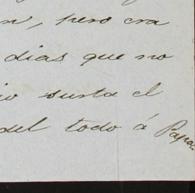 pero era
dias que no
surta el
del todo á Papa.